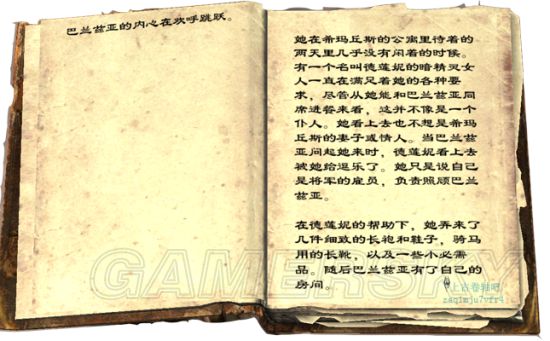 巴兰兹亚的内心在欢呼跳跃。
她在希玛丘斯的公寓里待着的
两天里几乎没有闲着的时候。
有一个名叫德莲妮的暗精灵女
人一直在满足着她的各种要
求，尽管从她能和巴兰兹亚同
席进餐来看，这并不像是一个
仆人。她看上去也不想是希玛
丘斯的妻子或情人。当巴兰兹
亚问起她来时，德莲妮看上去
被她给逗乐了。她只是说自己
是将军的雇员，负责照顾巴兰
兹亚。
在德莲妮的帮助下，她弄来了
几件细致的长袍和鞋子，骑马
用的长靴，以及一些小必需
品。随后巴兰兹亚有了自己的
房间。
GAMERSKY
上古卷轴吧
zaq1mju7vfr4